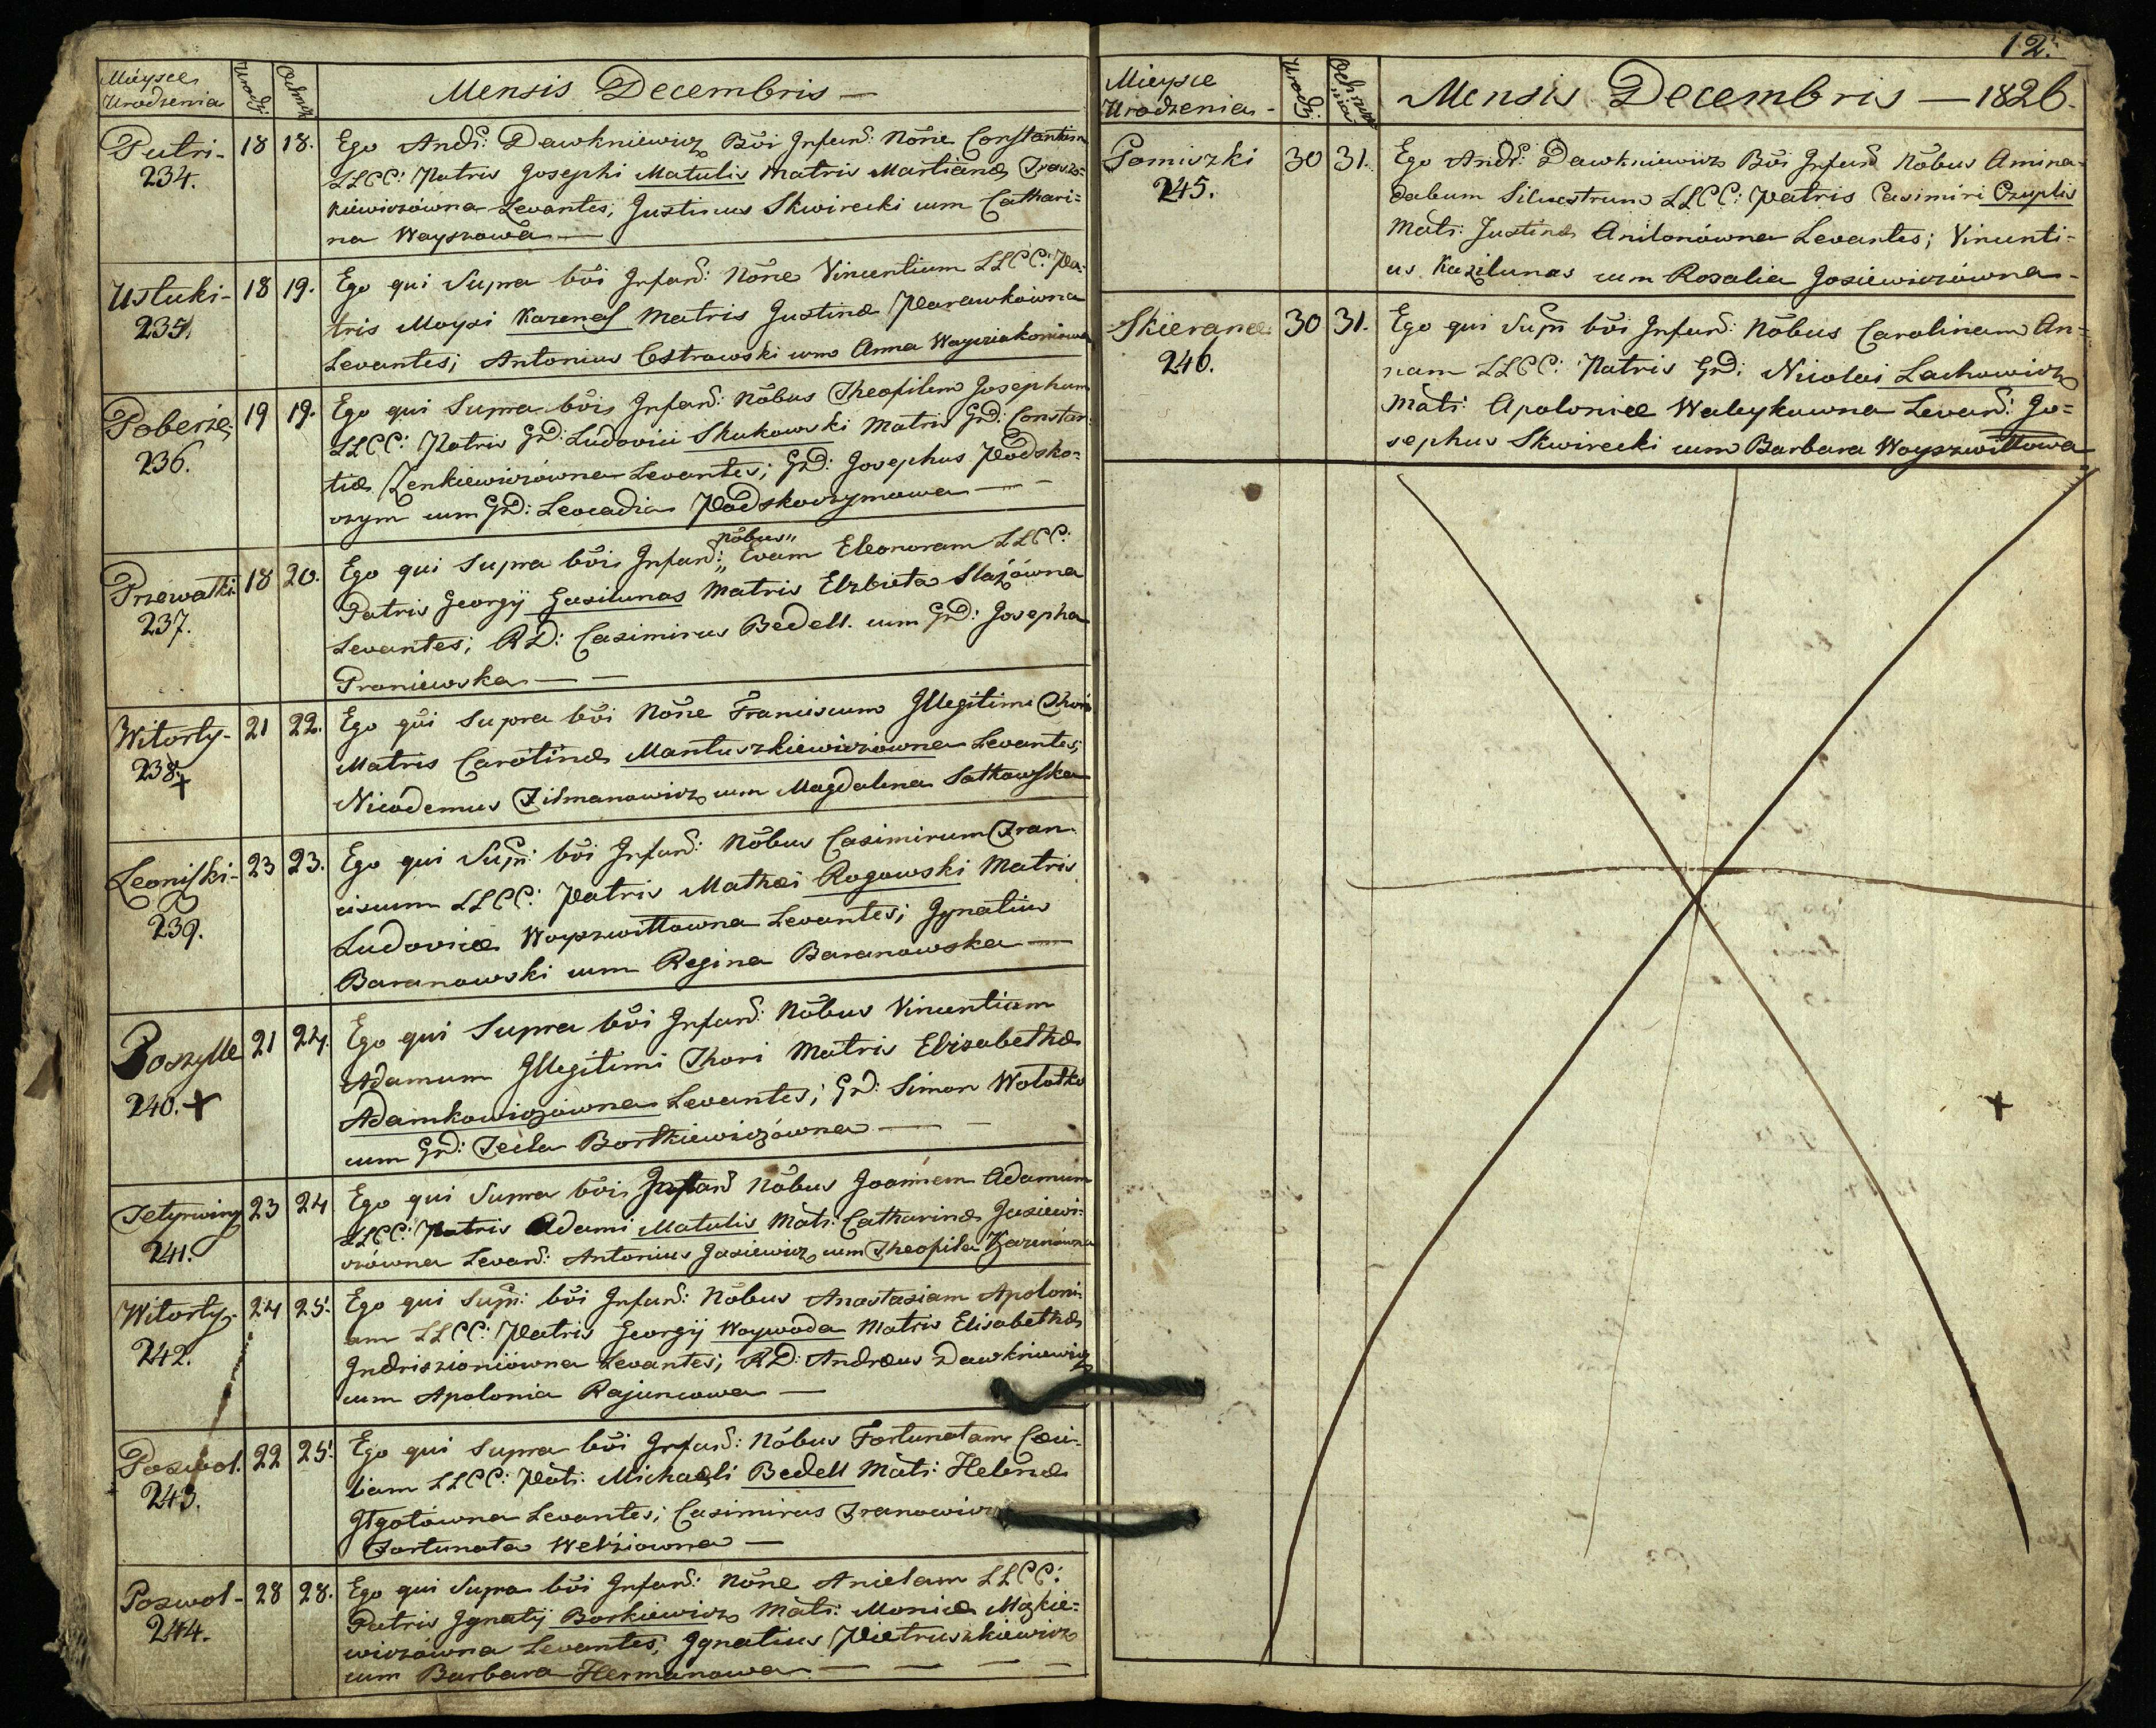 Mieysce
Urodzenia
Urodz:
Ochrz:
Mensis Decembris —
Putri-
234.
18
18.
Ego Andr: Dawkniewicz Bõi Infan͂d: Nõne Constantium
LLCC: Patris Josephi Matulis Matris Martianæ
kiewiczówna Levantes; Justinus Skwirecki cum Cathari=
na Wayszowa —
Ustuki-
235.
18
19.
Ego qui Supra bõi Infan͂d: Nõne Vincentium LLCC: Pa-
tris Moysi Kazenas Matris Justinæ Parawkówna
Levantes; Antonius Ostrowski cum Anna
Poberże-
236.
19
19.
Ego qui Supra bõi Infan͂d: Nõbus Theofilem Josephum
LLCC: Patris GD: Ludovici Skukowski Matris GD: Constan-
tiæ Zenkiewiczówna Levantes; GD: Josephus Podsko-
czym cum GD: Leocadia Podskoczymowa — —
Przewałki
237.
18
20.
Ego qui Supra bõi Infan͂d: Nõbus Evam Eleonoram LLCC:
Patris Georgij Gasilunas Matris Elzbieta Slażówna
Levantes; RD: Casimirus Bedell. cum GD: Josepha
Proniewska — —
Witorty-
238. +
21
22.
Ego qui Supra bõi Nõne Franciscum Illegitimi Thori
Matris Carolinæ Mantuszkiewiczówna Levantes;
Nicodemus Zilmanowicz cum Magdalena Satkowska
Leoniszki-
239.
23
23.
Ego qui Supr: bõi Infan͂d: Nõbus Casimirum Fran-
ciscum LLCC: Patris Mathæi Rogowski Matris
Ludovicæ Woyszwiłłowna Levantes; Ignatius
Baranowski cum Regina Baranowska —
Poszylle
240. +
21
24.
Ego qui Supra bõi Infan͂d: Nõbus Vincentium
Adamum Illegitimi Thori Matris Elisabethæ
Adamkowiczówna Levantes; GD: Simon Wołotko
cum GD: Tecla Bortkiewiczówna —
Tetyrwiny
241.
23
24
Ego qui Supra bõi Infan͂d Nõbus Joannem Adamum
LLCC: Patris Adami Matulis Mats: Catharinæ Jasiewi-
czówna Levan͂d: Antonius Jasiewicz cum Theofila Kazenówna
Witorty-
242.
24
25.
Ego qui Supr: bõi Infan͂d: Nõbus Anastasiam Apoloni-
am LLCC: Patris Georgij Woywoda Matris Elisabethæ
Indriszioniówna Levantes; RD: Andreus Dawkniewicz
cum Apolonia Rajuncowa —
Poswol.
243.
22
25.
Ego qui Supra bõi Infan͂d: Nõbus Fortunatam Cæci-
liam LLCC: Pats: Michaeli Bedell Mats: Helenæ
Levantes; Casimirus Iranowicz
Fortunata Welżiowna —
Poswol-
244.
28
28.
Ego qui Supra bõi Infan͂d: Nõne Anielam LLCC:
Patris Ignatij Borkiewicz Mats: Monicæ Mażkie=
wiczówna Levantes; Ignatius Pietruszkiewicz
cum Barbara Hermanowa — — — —
12.
Mieysce
Urodzenia-
Urodz:
Mensis Decembris — 1826.
Pomiszki
245.
30
31.
Ego Andr: Dawkniewicz Bõi Infan͂d Nõbus Amina-
dabum Silvestrum LLCC: Patris Casimiri Czeplis
Mats: Justinæ Anilonówna Levantes; Vincenti=
us Kazilunas cum Rosalia Josiewiczówna -
Skierance
246.
30
31.
Ego qui Supr bõi Infan͂d: Nõbus Carolinam An=
nam LLCC: Patris GD: Nicolai Lachowicz
Mats: Apoloniæ Waleykowna Levan͂d: Jo=
sephus Skwirecki cum Barbara Woyszwiłłowa
+